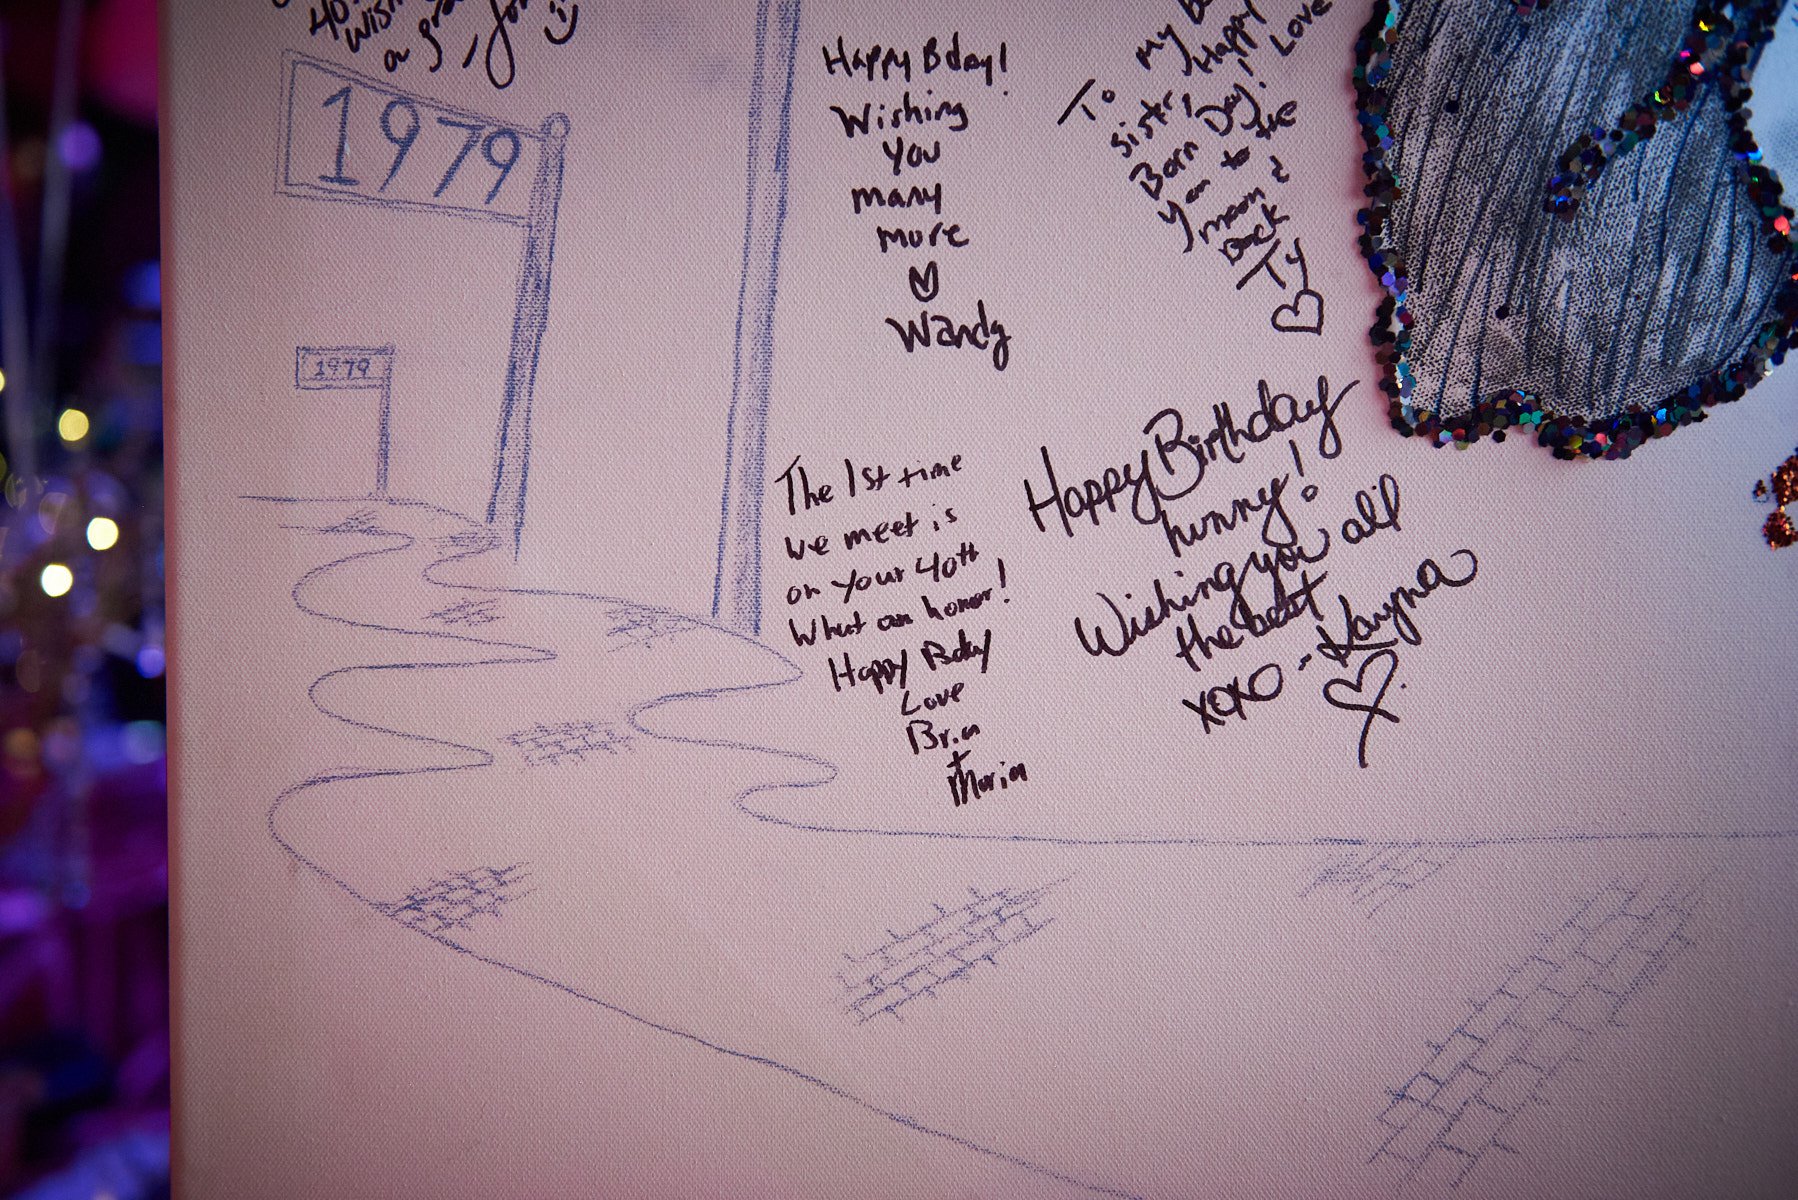 40
wish
a
1979
1979
Happy Bday!
Wishing
you
many
more
Wandy
To my
sistr, Happy
Born Day! Love
you to the
moon &
Back
Ty
The 1st time
we meet is
on your 40th
What an honor!
Happy Bday
Love
Brian
+
Maria
Happy Birthday
hunny!
Wishing you all
the best
xoxo - Kayna